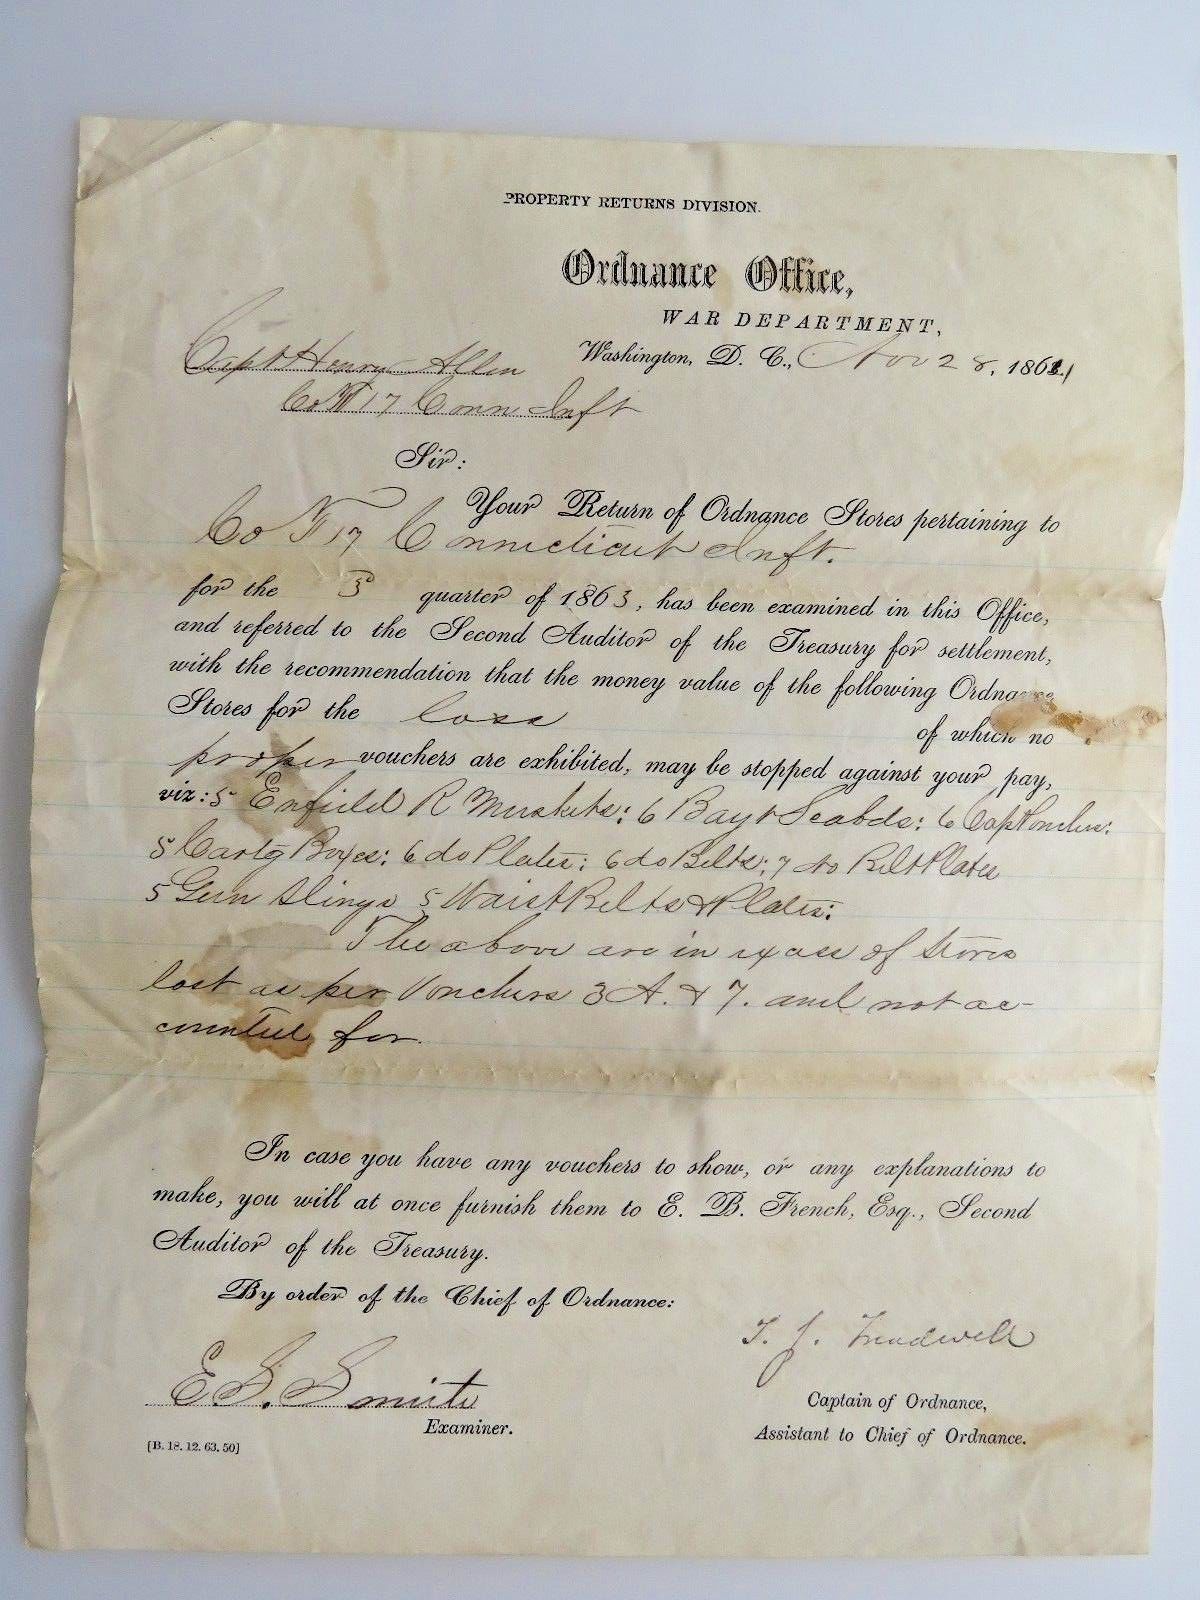 PROPERTY RETURNS DIVISION.
Ordnance Office,
WAR DEPARTMENT,
Washington, D. C., Nov 28, 1864
Capt Henry Allen
Co F 17 Conn Inft
Sir:
Your Return of Ordnance Stores pertaining to
Co F 17 Connecticut Inft.
for the 3d quarter of 1863, has been examined in this Office,
and referred to the Second Auditor of the Treasury for settlement,
with the recommendation that the money value of the following Ordnance
Stores for the loss of which no
proper vouchers are exhibited, may be stopped against your pay,
viz: 5 Enfield R Muskets: 6 Bayt Scabds: 6 Cap Pouches:
5 Cartg Boxes: 6 do Plates: 6 do Belts: 7 do Belt Plates
5 Gun Slings 5 Waist Belts & Plates:
The above are in excess of Stores
lost as per Vouchers 3 A. & 7. and not ac-
counted for.
In case you have any vouchers to show, or any explanations to
make, you will at once furnish them to E. B. French, Esq., Second
Auditor of the Treasury.
By order of the Chief of Ordnance:
T. J. Treadwell
Captain of Ordnance,
Assistant to Chief of Ordnance.
E. Smith
Examiner.
[B. 18. 12. 63. 50]